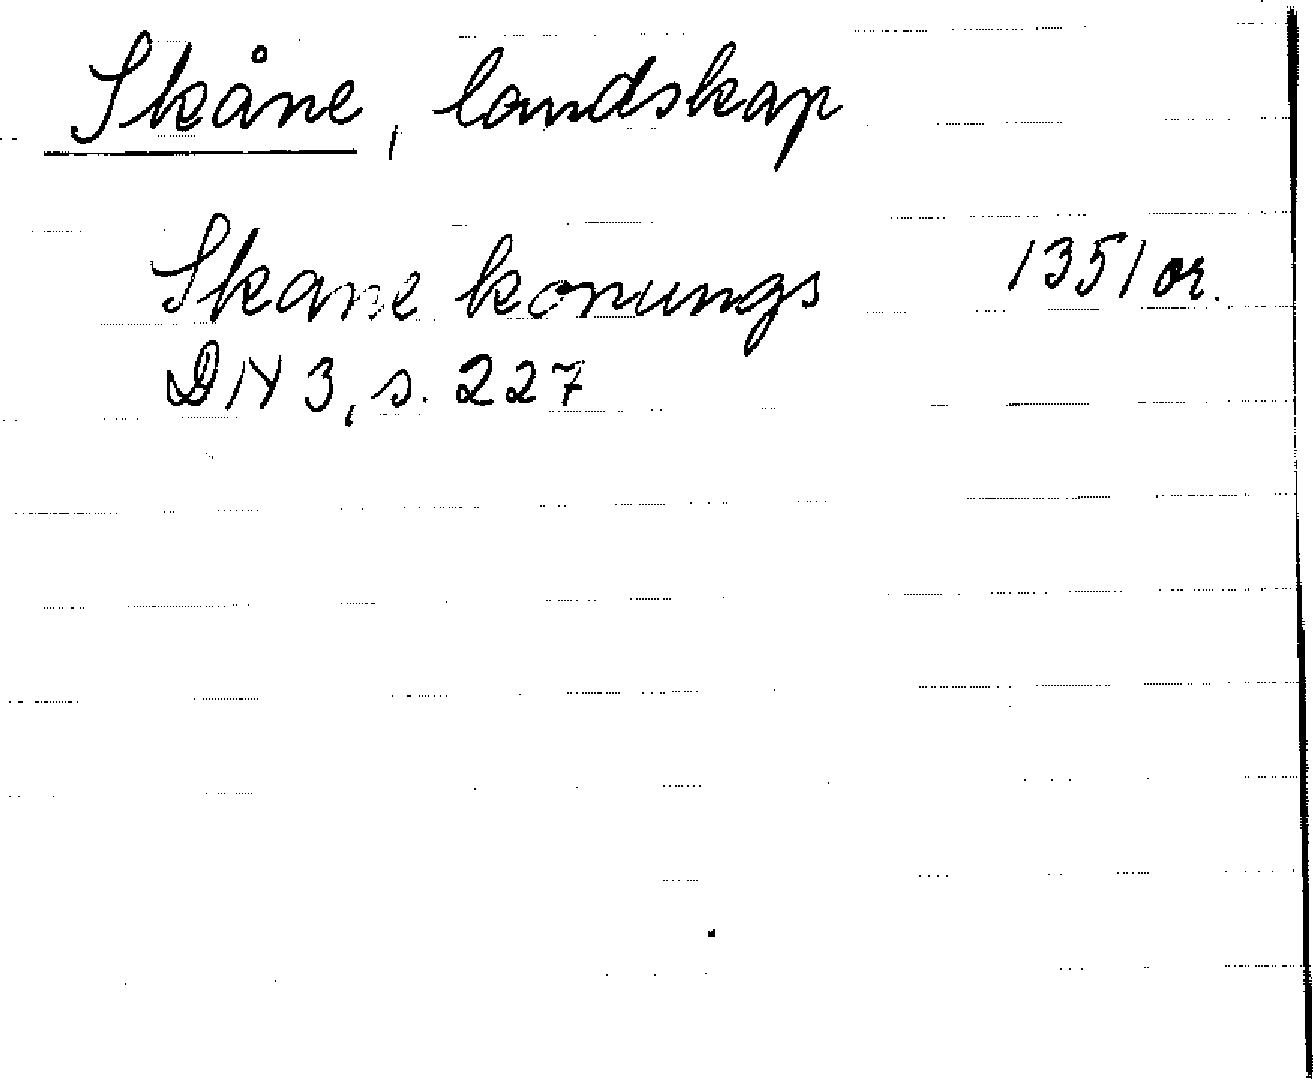 Skåne, landskap
Skane konungs 1351 or.
DN 3, s. 227